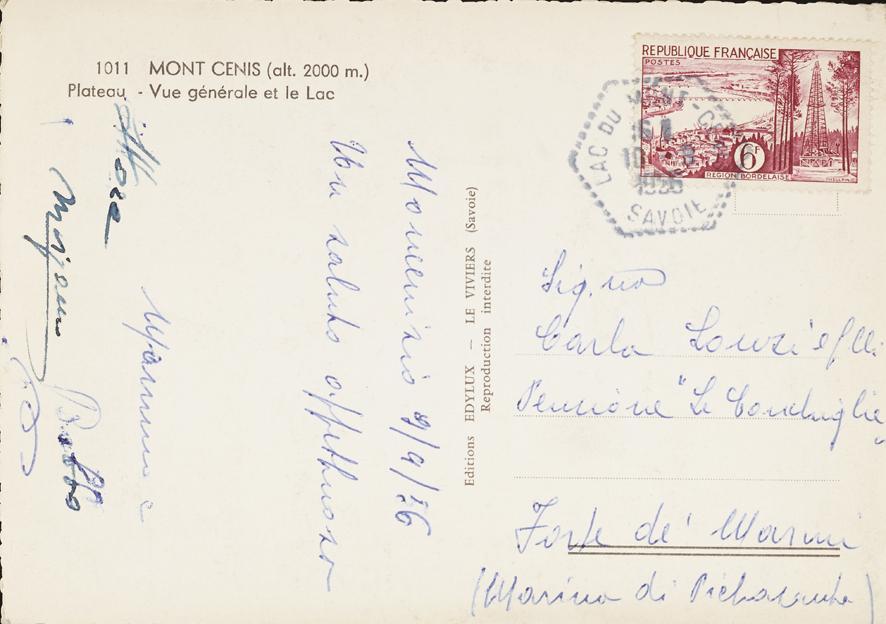 1011 MONT CENIS (alt. 2000 m.)
Plateau - Vue générale et le Lac
REPUBLIQUE FRANÇAISE
POSTES
6F
REGION BORDELAISE
LAC DU MONT-CENIS
16 H
10 - 9
1956
SAVOIE
Editions EDYLUX — LE VIVIERS (Savoie)
Reproduction interdite
Moncenisio 9/9/56
Un saluto affettuoso
Mamma e
Babbo
Sig.na
Carla
Pensione "Le Conchiglie"
Forte de' Marmi
(Marina di Pietrasanta)